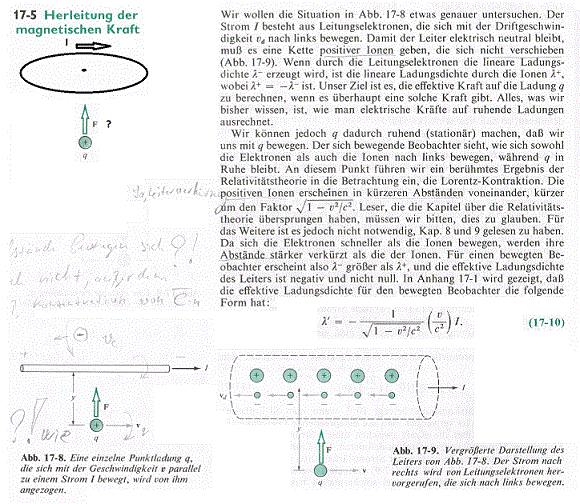 17-5 Herleitung der
magnetischen Kraft
I
F ?
q
Wir wollen die Situation in Abb. 17-8 etwas genauer untersuchen. Der
Strom I besteht aus Leitungselektronen, die sich mit der Driftgeschwin-
digkeit vd nach links bewegen. Damit der Leiter elektrisch neutral bleibt,
muß es eine Kette positiver Ionen geben, die sich nicht verschieben
(Abb. 17-9). Wenn durch die Leitungselektronen die lineare Ladungs-
dichte λ⁻ erzeugt wird, ist die lineare Ladungsdichte durch die Ionen λ⁺,
wobei λ⁺ = −λ⁻ ist. Unser Ziel ist es, die effektive Kraft auf die Ladung q
zu berechnen, wenn es überhaupt eine solche Kraft gibt. Alles, was wir
bisher wissen, ist, wie man elektrische Kräfte auf ruhende Ladungen
ausrechnet.
Wir können jedoch q dadurch ruhend (stationär) machen, daß wir
uns mit q bewegen. Der sich bewegende Beobachter sieht, wie sich sowohl
die Elektronen als auch die Ionen nach links bewegen, während q in
Ruhe bleibt. An diesem Punkt führen wir ein berühmtes Ergebnis der
Relativitätstheorie in die Betrachtung ein, die Lorentz-Kontraktion. Die
positiven Ionen erscheinen in kürzeren Abständen voneinander, kürzer
um den Faktor √1 − v²/c². Leser, die die Kapitel über die Relativitäts-
theorie übersprungen haben, müssen wir bitten, dies zu glauben. Für
das Weitere ist es jedoch nicht notwendig, Kap. 8 und 9 gelesen zu haben.
Da sich die Elektronen schneller als die Ionen bewegen, werden ihre
Abstände stärker verkürzt als die der Ionen. Für einen bewegten Be-
obachter erscheint also λ⁻ größer als λ⁺, und die effektive Ladungsdichte
des Leiters ist negativ und nicht null. In Anhang 17-1 wird gezeigt, daß
die effektive Ladungsdichte für den bewegten Beobachter die folgende
Form hat:
λ' = − 1/√1 − v²/c² (v/c²) I. (17-10)
I
y
F
v
q
Abb. 17-8. Eine einzelne Punktladung q,
die sich mit der Geschwindigkeit v parallel
zu einem Strom I bewegt, wird von ihm
angezogen.
vd
I
y
F
v
q
Abb. 17-9. Vergrößerte Darstellung des
Leiters von Abb. 17-8. Der Strom nach
rechts wird von Leitungselektronen her-
vorgerufen, die sich nach links bewegen.